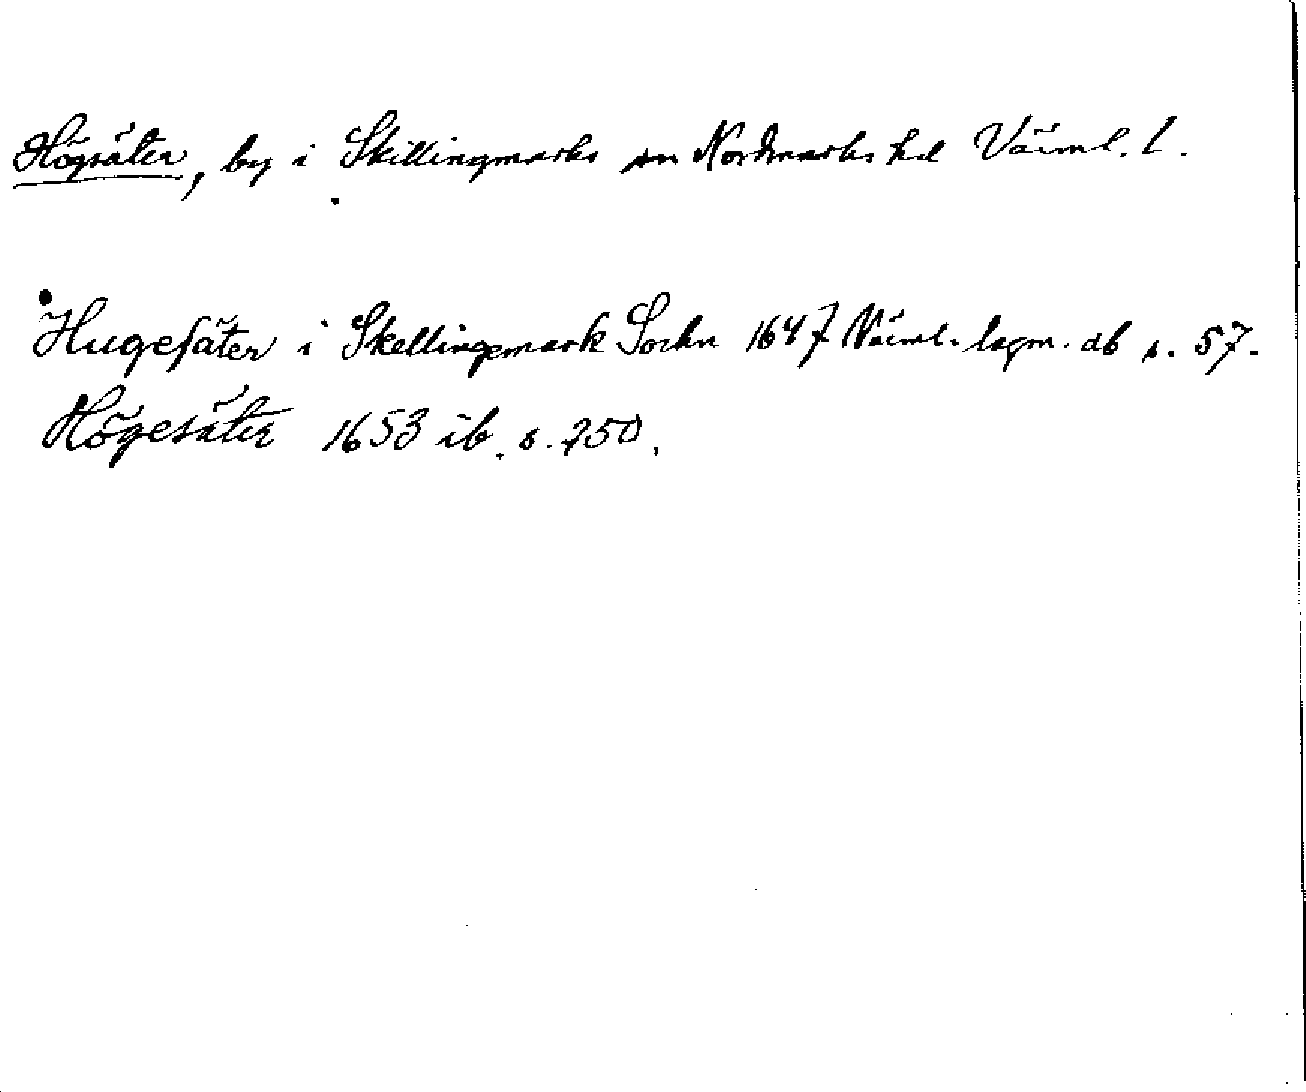 Högsäter, by i Skillingmarks sn Nordmarks hd Värml. l.
Hugesäter i Skellingemark Sochn 1647 Värml. lagm. db s. 57.
Högesäter 1653 ib. s. 750.